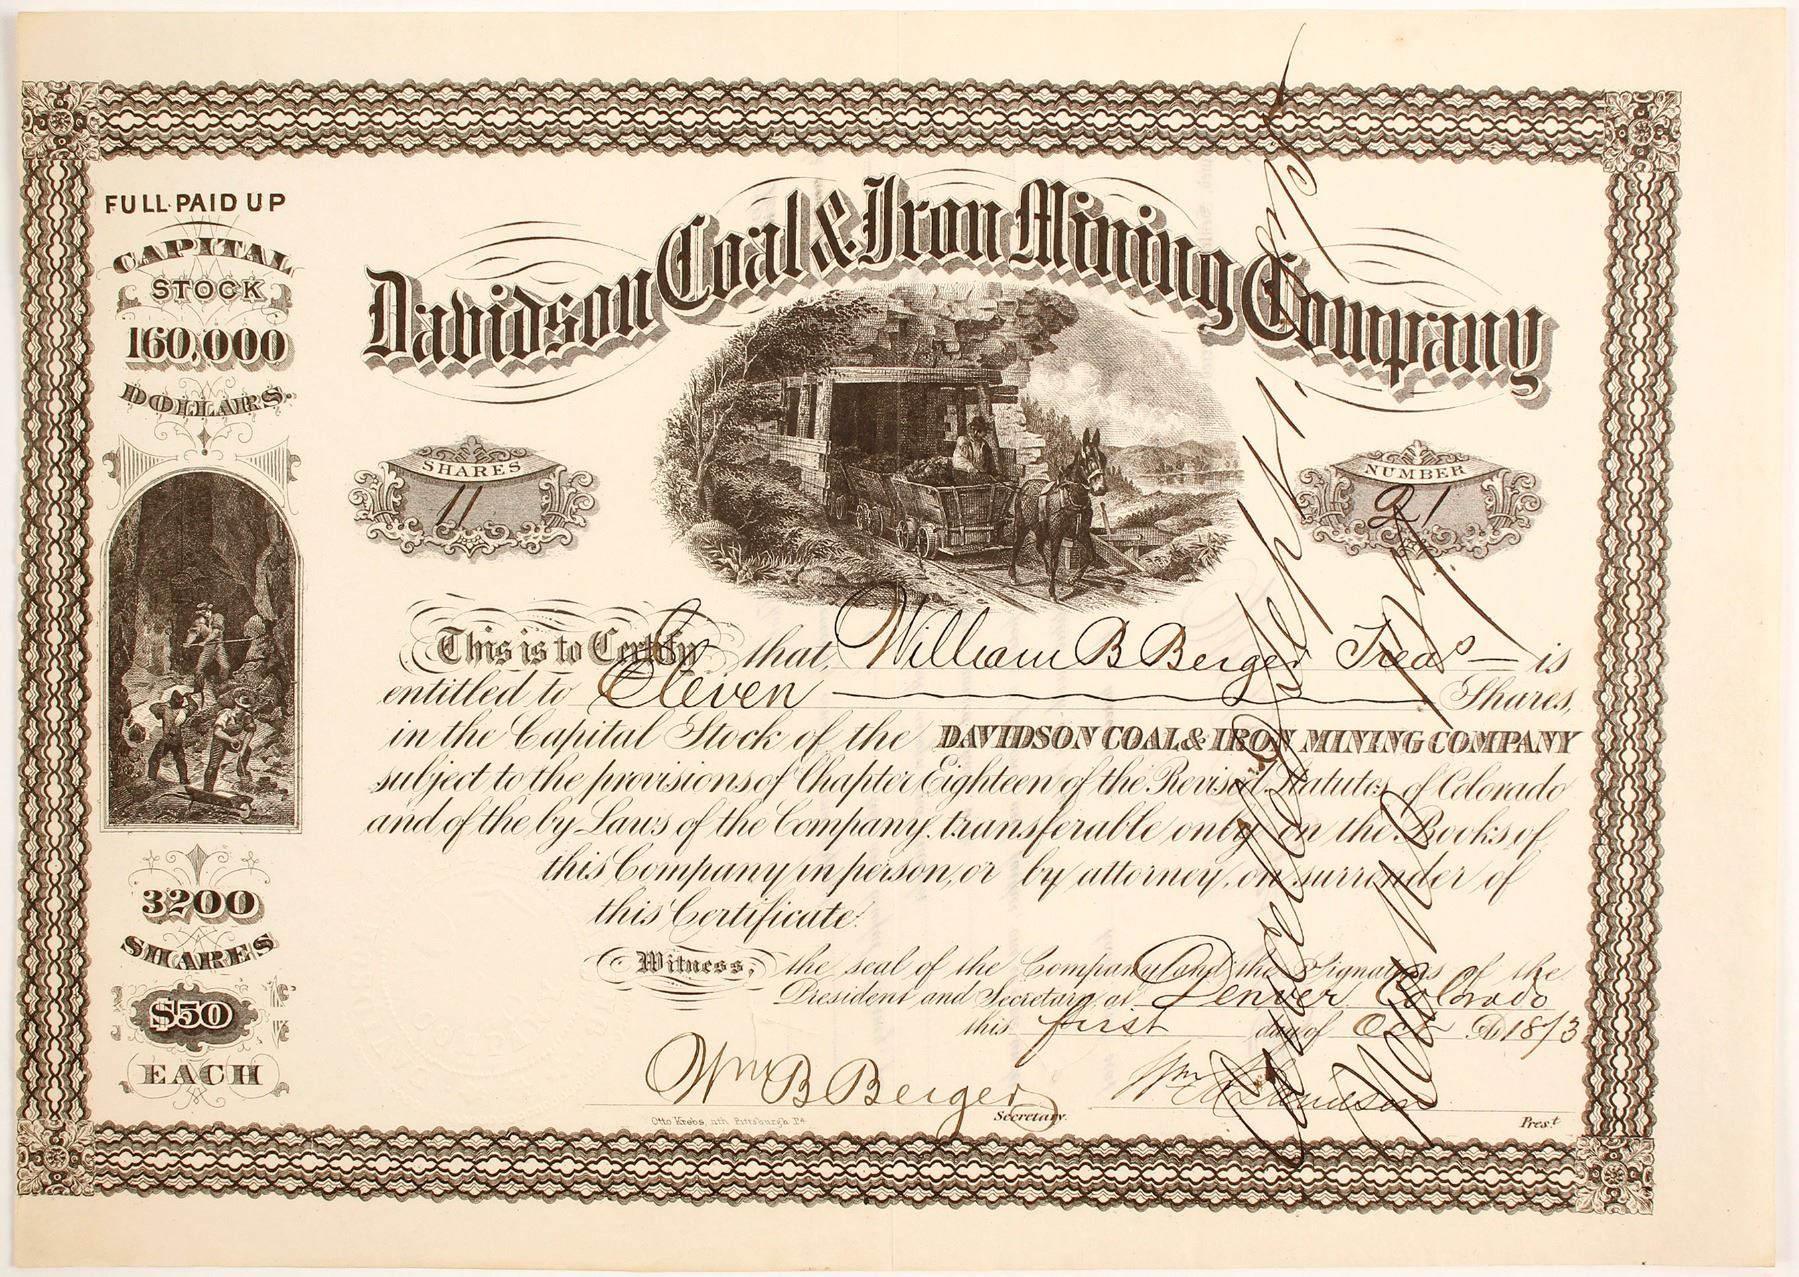 FULL PAID UP
CAPITAL
STOCK
160,000
DOLLARS.
3200
SHARES
$50
EACH
Davidson Coal & Iron Mining Company
SHARES
11
NUMBER
21
This is to Certify that, William B Berger Treas is
entitled to Eleven Shares,
in the Capital Stock of the DAVIDSON COAL & IRON MINING COMPANY
subject to the provisions of Chapter Eighteen of the Revised Statutes of Colorado
and of the by Laws of the Company transferable only on the Books of
this Company in person, or by attorney, on surrender of
this Certificate.
Witness, the seal of the Company and the Signatures of the
President and Secretary, at Denver, Colorado
this first day of Oct AD 1873
Wm B Berger
Secretary.
Wm A Davidson
Prest
Otto Krebs, Lith. Pittsburgh Pa
Cancelled Sept 1.